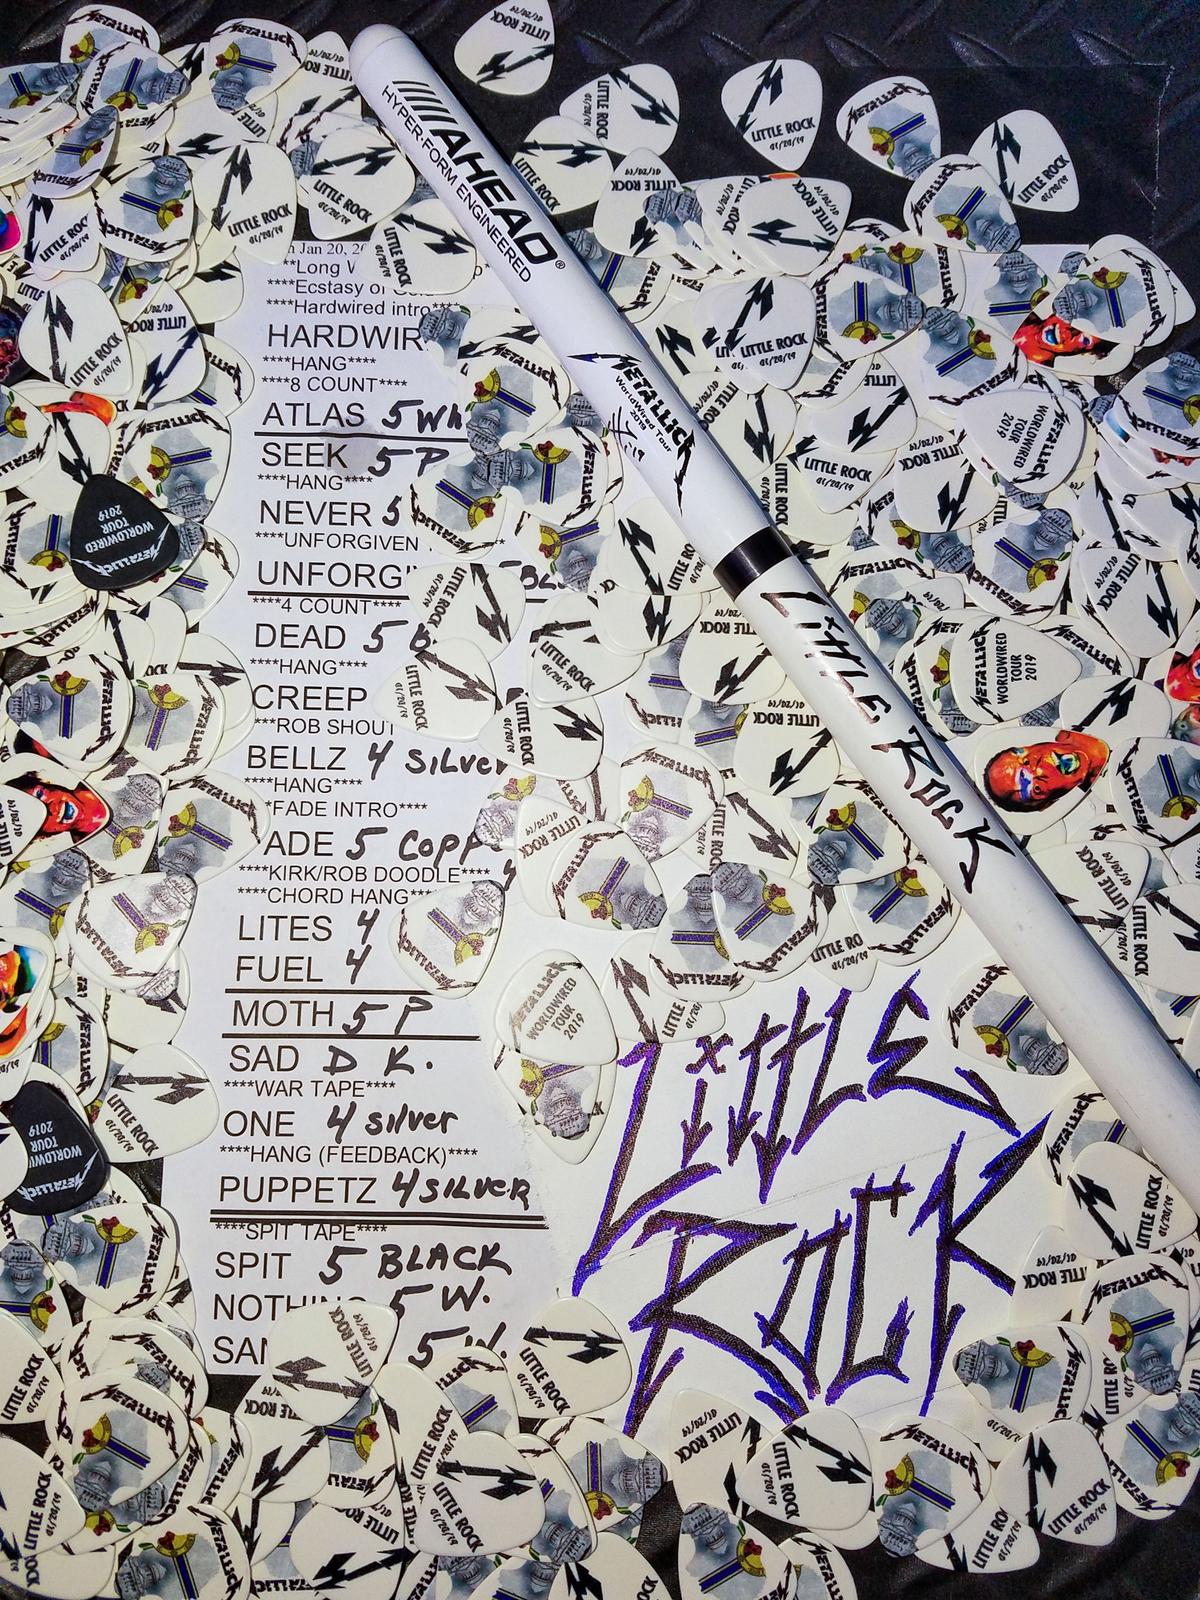 AHEAD®
HYPER·FORM ENGINEERED
METALLICA
WorldWired Tour
2019
LiTTLE ROCK
Jan 20,
**Long
****Ecstasy of
****Hardwired intro
HARDWIR
****HANG****
****8 COUNT****
ATLAS 5 Wh
SEEK 5 P
****HANG****
NEVER 5
****UNFORGIVEN
UNFORGI 5BL
****4 COUNT****
DEAD 5 B
****HANG****
CREEP
***ROB SHOUT
BELLZ 4 SiLver
****HANG****
*FADE INTRO****
ADE 5 Copp
****KIRK/ROB DOODLE****
****CHORD HANG****
LITES 4
FUEL 4
MOTH 5 P
SAD D K.
****WAR TAPE****
ONE 4 silver
****HANG (FEEDBACK)****
PUPPETZ 4 SILVER
****SPIT TAPE****
SPIT 5 BLACK
NOTHIN 5 W.
SAN 5 W.
LiTTLE
ROCK
METALLICA
WORLDWIRED
TOUR
2019
LITTLE ROCK
01/20/19